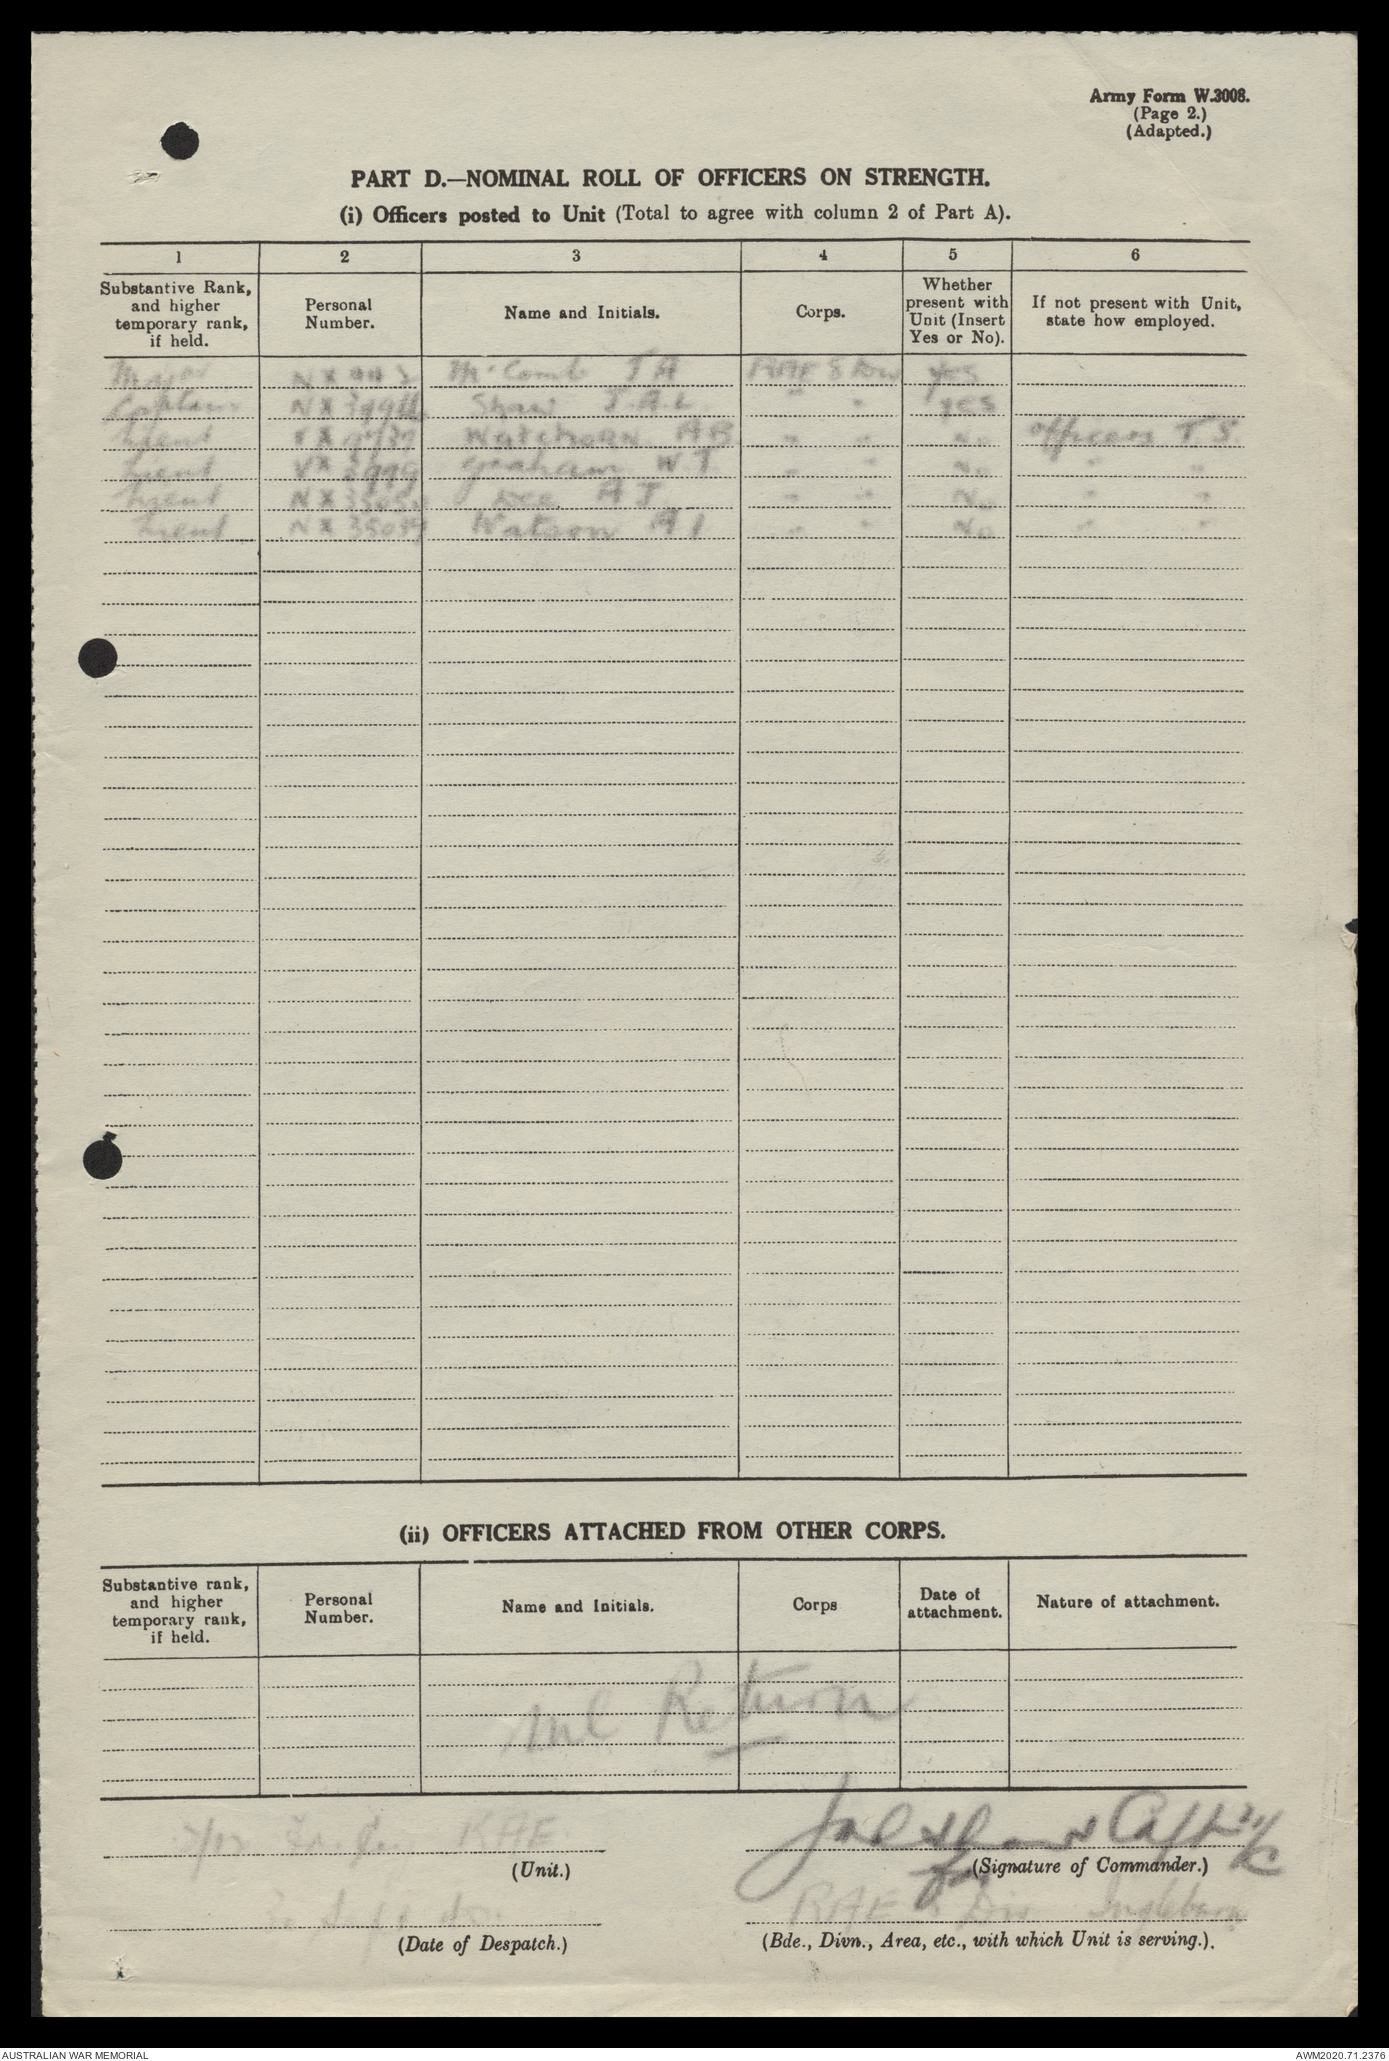 Army Form W.3008.
(Page 2.)
(Adapted.)
PART D.—NOMINAL ROLL OF OFFICERS ON STRENGTH.
(i) Officers posted to Unit (Total to agree with column 2 of Part A).
1 2 3 4 5 6
Substantive Rank, and higher temporary rank, if held. Personal Number. Name and Initials. Corps. Whether present with Unit (Insert Yes or No). If not present with Unit, state how employed.
Major McComb J A RAE 8 Div yes
Captain Shaw J.A.L " " yes
Lieut Watchorn A B " " No officers T.S.
Lieut Graham W.J " " No " "
Lieut Dee A J " " No " "
Lieut NX 35039 Watson A I " " No " "
(ii) OFFICERS ATTACHED FROM OTHER CORPS.
Substantive rank, and higher temporary rank, if held. Personal Number. Name and Initials. Corps Date of attachment. Nature of attachment.
Nil Return
2/12 RAE
(Unit.)
Shaw Capt
for (Signature of Commander.)
(Date of Despatch.)
RAE 8 Div Ingleburn
(Bde., Divn., Area, etc., with which Unit is serving.).
AUSTRALIAN WAR MEMORIAL
AWM2020.71.2376